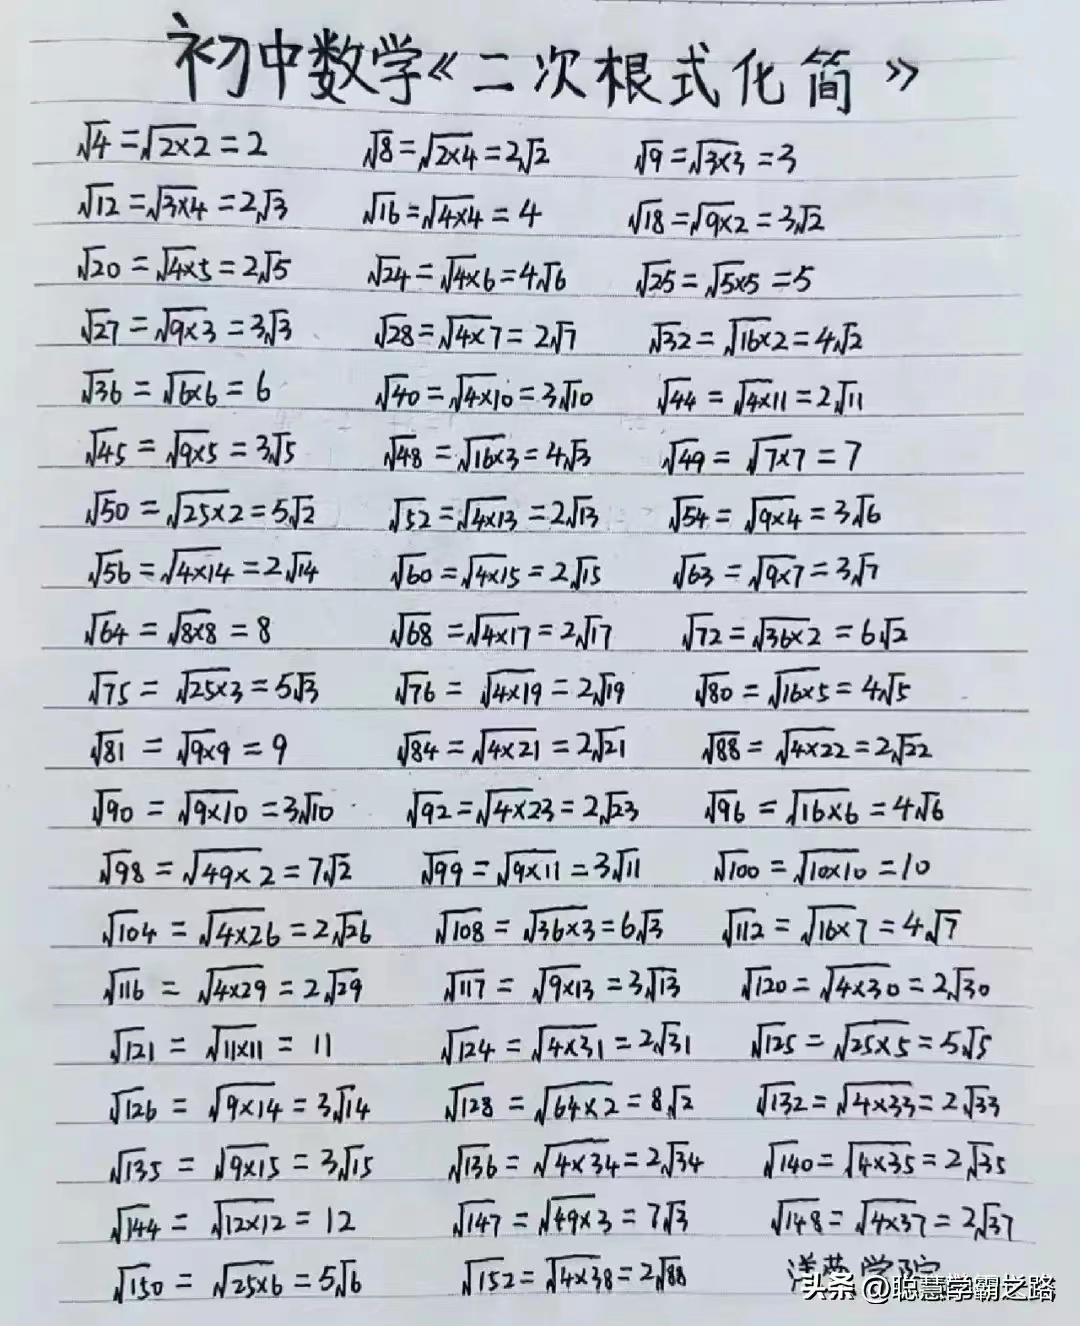 初中数学《二次根式化简》
√4=√2×2=2 √8=√2×4=2√2 √9=√3×3=3
√12=√3×4=2√3 √16=√4×4=4 √18=√9×2=3√2
√20=√4×5=2√5 √24=√4×6=4√6 √25=√5×5=5
√27=√9×3=3√3 √28=√4×7=2√7 √32=√16×2=4√2
√36=√6×6=6 √40=√4×10=3√10 √44=√4×11=2√11
√45=√9×5=3√5 √48=√16×3=4√3 √49=√7×7=7
√50=√25×2=5√2 √52=√4×13=2√13 √54=√9×4=3√6
√56=√4×14=2√14 √60=√4×15=2√15 √63=√9×7=3√7
√64=√8×8=8 √68=√4×17=2√17 √72=√36×2=6√2
√75=√25×3=5√3 √76=√4×19=2√19 √80=√16×5=4√5
√81=√9×9=9 √84=√4×21=2√21 √88=√4×22=2√22
√90=√9×10=3√10 √92=√4×23=2√23 √96=√16×6=4√6
√98=√49×2=7√2 √99=√9×11=3√11 √100=√10×10=10
√104=√4×26=2√26 √108=√36×3=6√3 √112=√16×7=4√7
√116=√4×29=2√29 √117=√9×13=3√13 √120=√4×30=2√30
√121=√11×11=11 √124=√4×31=2√31 √125=√25×5=5√5
√126=√9×14=3√14 √128=√64×2=8√2 √132=√4×33=2√33
√135=√9×15=3√15 √136=√4×34=2√34 √140=√4×35=2√35
√144=√12×12=12 √147=√49×3=7√3 √148=√4×37=2√37
√150=√25×6=5√6 √152=√4×38=2√88
头条 @聪慧学霸之路